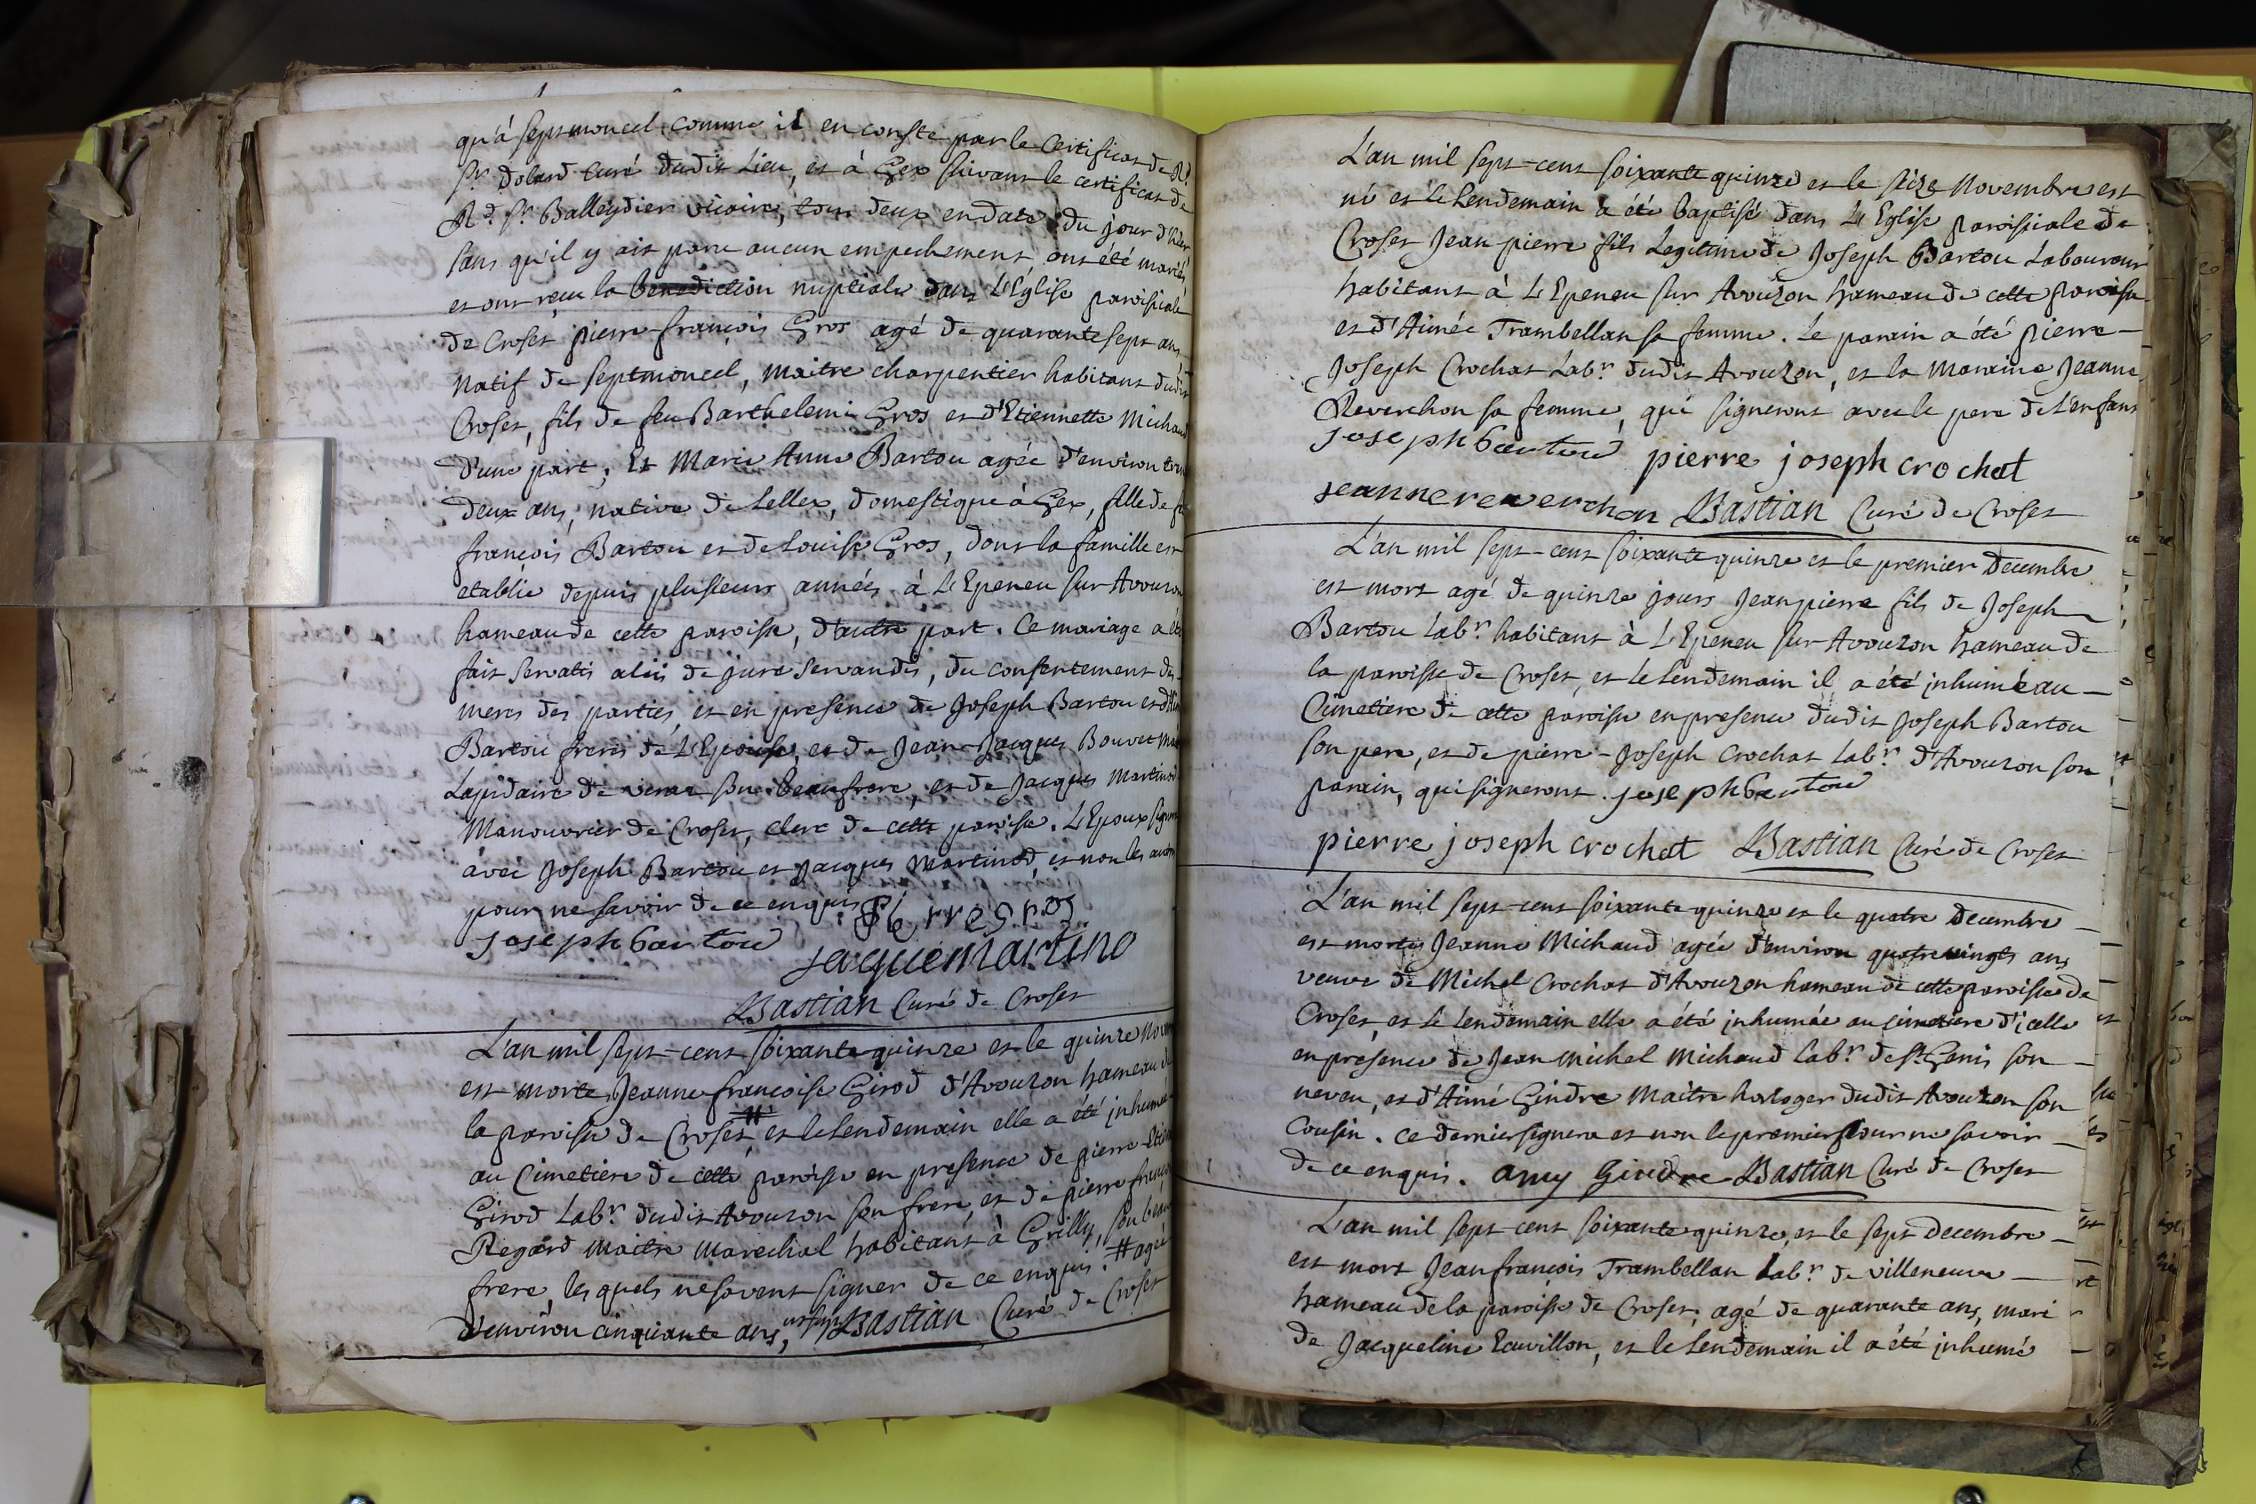 qu'à septmoncel comme il en conste par le Certificat de Rd
Sr dolard Curé dudit Lieu, et à Gex suivant le certificat de
Rd. Sr. Balleydier vicaire, tous deux en date du jour d'hier
sans qu'il y ait paru aucun empechement ont été mariés
et ont reçu la benediction nuptiale dans L'Église paroissiale
de Croset pierre-françois Gros agé de quarante sept ans
natif de septmoncel, maitre charpentier habitant dudit
Croset, fils de feu Barthelemi Gros et d'Etiennette Michaud
d'une part, Et Marie Anne Bartou agée d'environ trente
deux ans, native de Lellex, domestique à Gex, fille de feu
françois Bartou et de Louise Gros, dont la famille est
etablie depuis plusieurs années à L'Epeneu sur Avouzon
hameau de cette paroisse, d'autre part. Ce mariage a été
fait servatis aliis de jure servandis, du consentement des
meres des parties, et en presence de Joseph Bartou et
Bartou freres de L'Epouse, et de Jean-Jacques Bouvet
Lapidaire de son beaufrere, et de Jacques Martinod
Manouvrier de Croset, clerc de cette paroisse. L'Epoux signera
avec Joseph Bartou et Jacques Martinod, et non les autres
pour ne savoir de ce enquis pierre gros
joseph bartou
jacque martino
Bastian Curé de Croset
L'an mil sept-cent soixante quinze et le quinze Novembre
est morte Jeanne françoise Girod d'Avouzon hameau de
la paroisse de Croset # et le Lendemain elle a été inhumée
au Cimetiere de cette paroisse en presence de pierre
Girod Labr. dudit Avouzon son frere, et de pierre françois
Regard maitre marechal habitant à Grilly, son beau
frere, lesquels ne savent signer de ce enquis. # agée
d'environ cinquante ans, Bastian Curé de Croset
L'an mil sept-cent soixante quinze et le seize Novembre est
né et le Lendemain a été baptisé dans L'Eglise paroissiale de
Croset Jean pierre fils Legitime de Joseph Bartou Laboureur
habitant à L'Epeneu sur Avouzon hameau de cette paroisse
et d'Aimée Trambellan sa femme. Le parain a été pierre-
Joseph Crochat Labr. dudit Avouzon, et la Maraine Jeanne
Reverchon sa femme, qui signeront avec le pere de L'enfant
joseph bartou pierre joseph crochat
jeanne reverchon Bastian Curé de Croset
L'an mil sept-cent soixante quinze et le premier Decembre
est mort agé de quinze jours Jean pierre fils de Joseph
Bartou Labr. habitant à L'Epeneu sur Avouzon hameau de
la paroisse de Croset, et le Lendemain il a été inhumé au
Cimetiere de cette paroisse en presence dudit Joseph Bartou
son pere, et de pierre-Joseph Crochat Labr. d'Avouzon son
parain, qui signeront. joseph bartou
pierre joseph crochat Bastian Curé de Croset
L'an mil sept-cent soixante quinze et le quatre Decembre
est morte Jeanne Michaud agée d'environ quatre vingts ans
veuve de Michel Crochat d'Avouzon hameau de cette paroisse de
Croset, et le Lendemain elle a été inhumée au cimetiere d'icelle
en présence de Jean Michel Michaud Labr. de St Genis son
neveu, et d'Aimé Gindre Maitre horloger dudit Avouzon son
Cousin. Ce dernier signera et non le premier pour ne savoir
de ce enquis. Amy Gindre Bastian Curé de Croset
L'an mil sept-cent soixante quinze, et le sept Decembre
est mort Jean françois Trambellan Labr. de villeneuve
hameau de la paroisse de Croset, agé de quarante ans, mari
de Jacqueline Eauvillon, et le Lendemain il a été inhumé